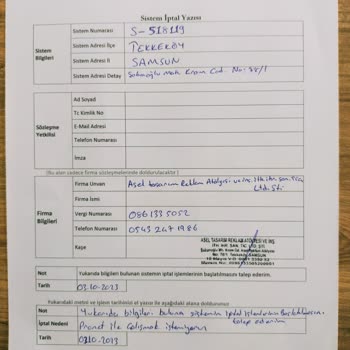 Sistem İptal Yazısı
Sistem Bilgileri
Sistem Numarası S-518119
Sistem Adresi İlçe TEKKEKÖY
Sistem Adresi İl SAMSUN
Sistem Adresi Detay Cad. No: 88/1
Sözleşme Yetkilisi
Ad Soyad
Tc Kimlik No
E-Mail Adresi
Telefon Numarası
İmza
(Bu alan sadece firma sözleşmelerinde doldurulacaktır)
Firma Bilgileri
Firma Unvan Asel tasarım Reklam Atölyesi ve
Ltd. Şti
Firma İsmi
Vergi Numarası 086 133 5052
Telefon Numarası 0543 247 1986
Kaşe
ASEL TASARIM REKLAM ATÖLYESİ VE İNŞ.
Not Yukarıda bilgileri bulunan sistemin iptal işlemlerinin başlatılmasını talep ederim.
Tarih 03.10.2023
Yukarıdaki metni ve işlem tarihinizi el yazısı ile aşağıdaki alana doldurunuz
Not Yukarıda bilgileri bulunan sistemin iptal işlemlerinin Başlatılmasını
talep ederim
İptal Nedeni Pronet ile Çalışmak istemiyorum
Tarih 03.10.2023